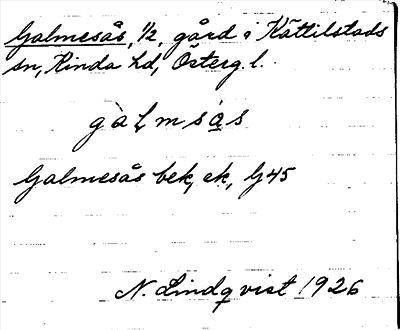 Galmesås, 1/2, gård i Kättilstads
sn, Kinda hd, Österg.l.
gàlmsas
Galmesås bek, ek, G45
N. Lindqvist 1926